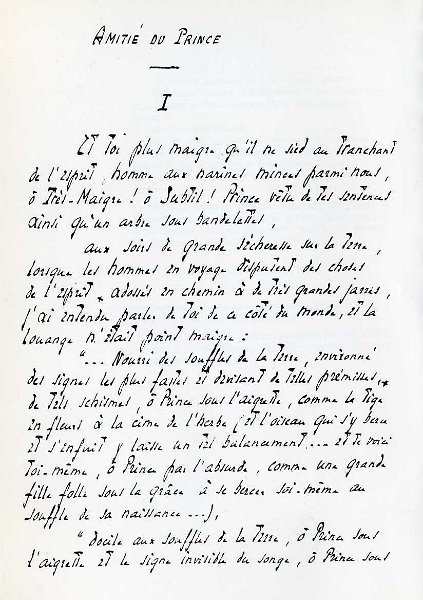 AMITIÉ DU PRINCE
I
Et toi plus maigre qu'il ne sied au tranchant
de l'esprit, homme aux narines minces parmi nous,
ô Très-Maigre ! ô Subtil ! Prince vêtu de tes sentences
ainsi qu'un arbre sous bandelettes,
aux soirs de grande sécheresse sur la terre,
lorsque les hommes en voyage disputent des choses
de l'esprit, adossés en chemin à de très grandes jarres,
j'ai entendu parler de toi de ce côté du monde, et la
louange n'était point maigre :
"... Nourri des souffles de la terre, environné
des signes les plus fastes et devisant de telles prémisses,
de tels schismes, ô Prince sous l'aigrette, comme la tige
en fleurs à la cime de l'herbe (et l'oiseau qui s'y berce
et s'enfuit y laisse un tel balancement... et te voici
toi-même, ô Prince par l'absurde, comme une grande
fille folle sous la grâce à se bercer soi-même au
souffle de sa naissance...),
"docile aux souffles de la terre, ô Prince sous
l'aigrette et le signe invisible du songe, ô Prince sous